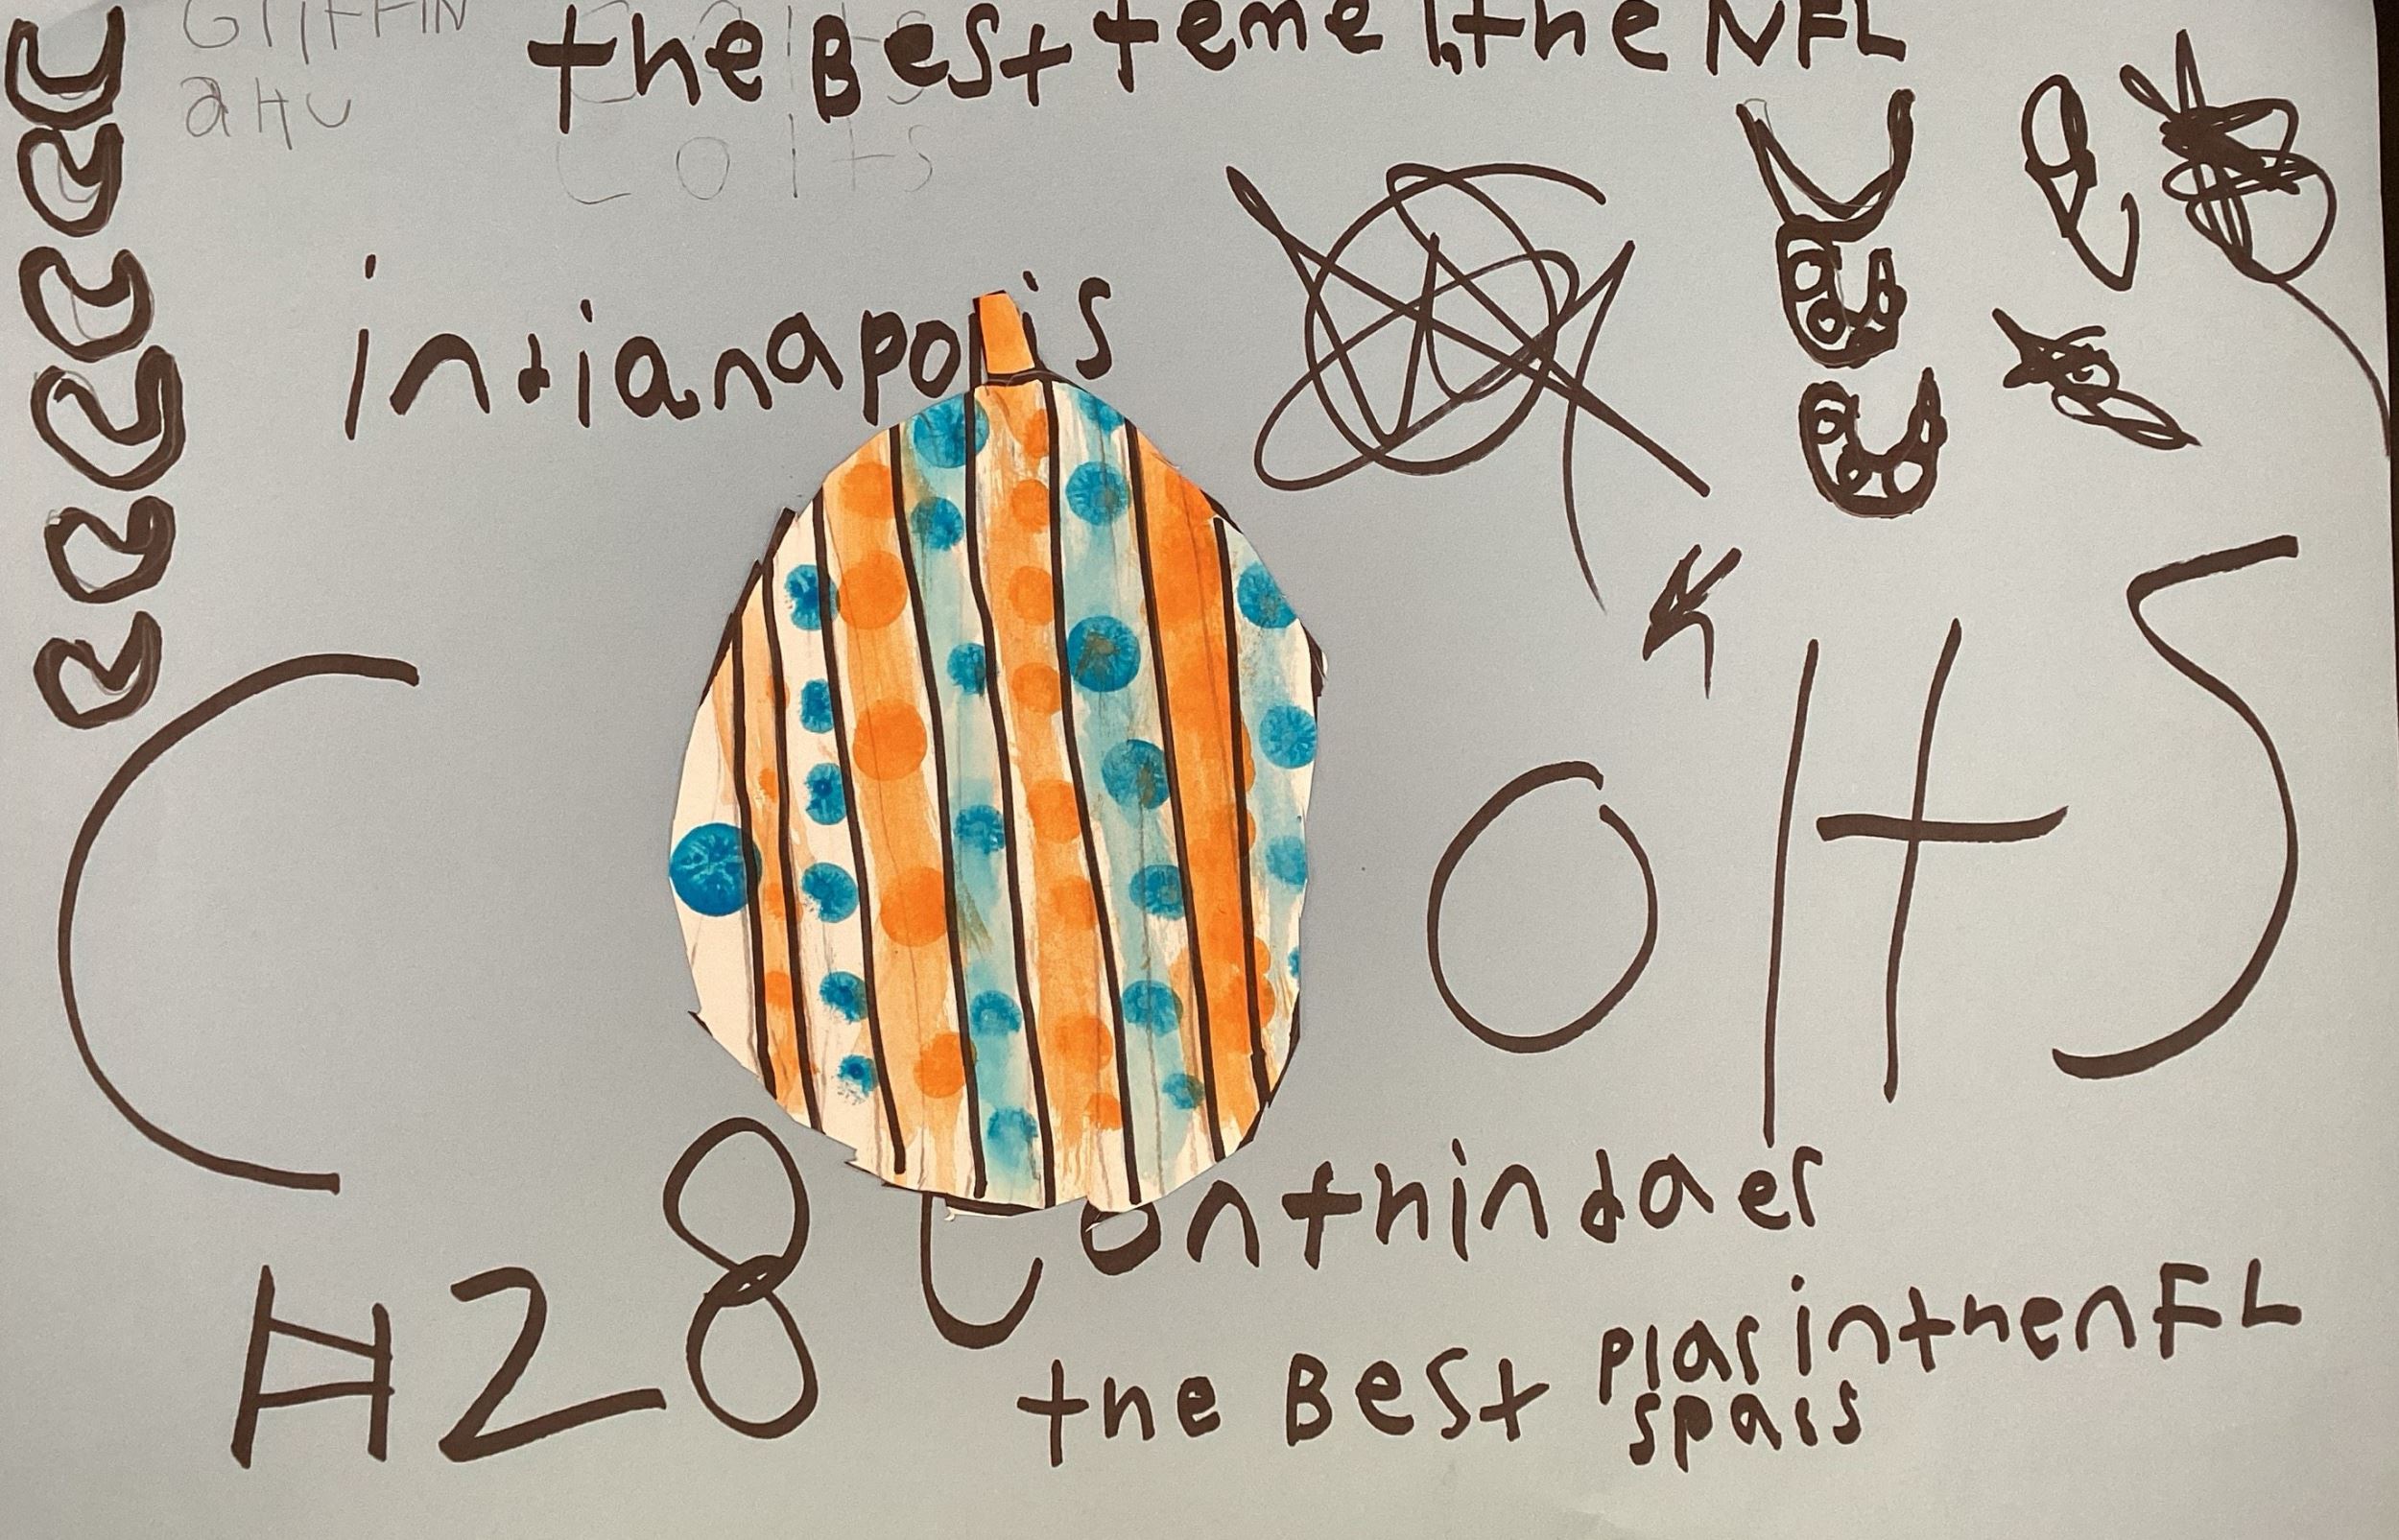 GriffIN
the Best teme in the NFL
aHU
Colts
indianapolis
Colts
#28 Jonthindaer
the Best plar in the nFL
spais